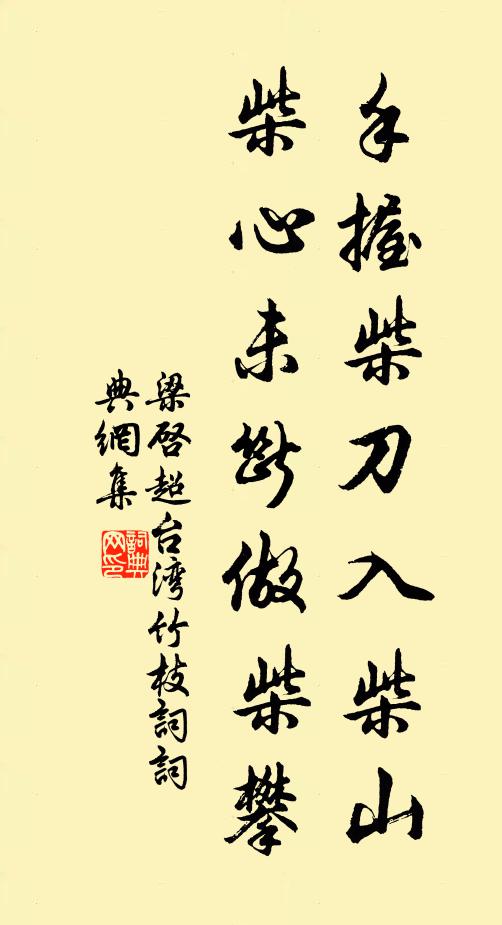 手握柴刀入柴山
柴心未断做柴攀
梁啓超台湾竹枝詞詞
典網集
詞典
网印